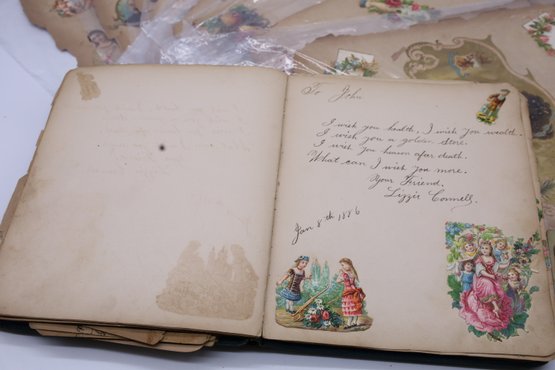 To John
I wish you health, I wish you wealth.
I wish you a golden store.
I wish you heaven after death.
What can I wish you more.
Your Friend.
Lizzie Connells.
Jan 8th 1886